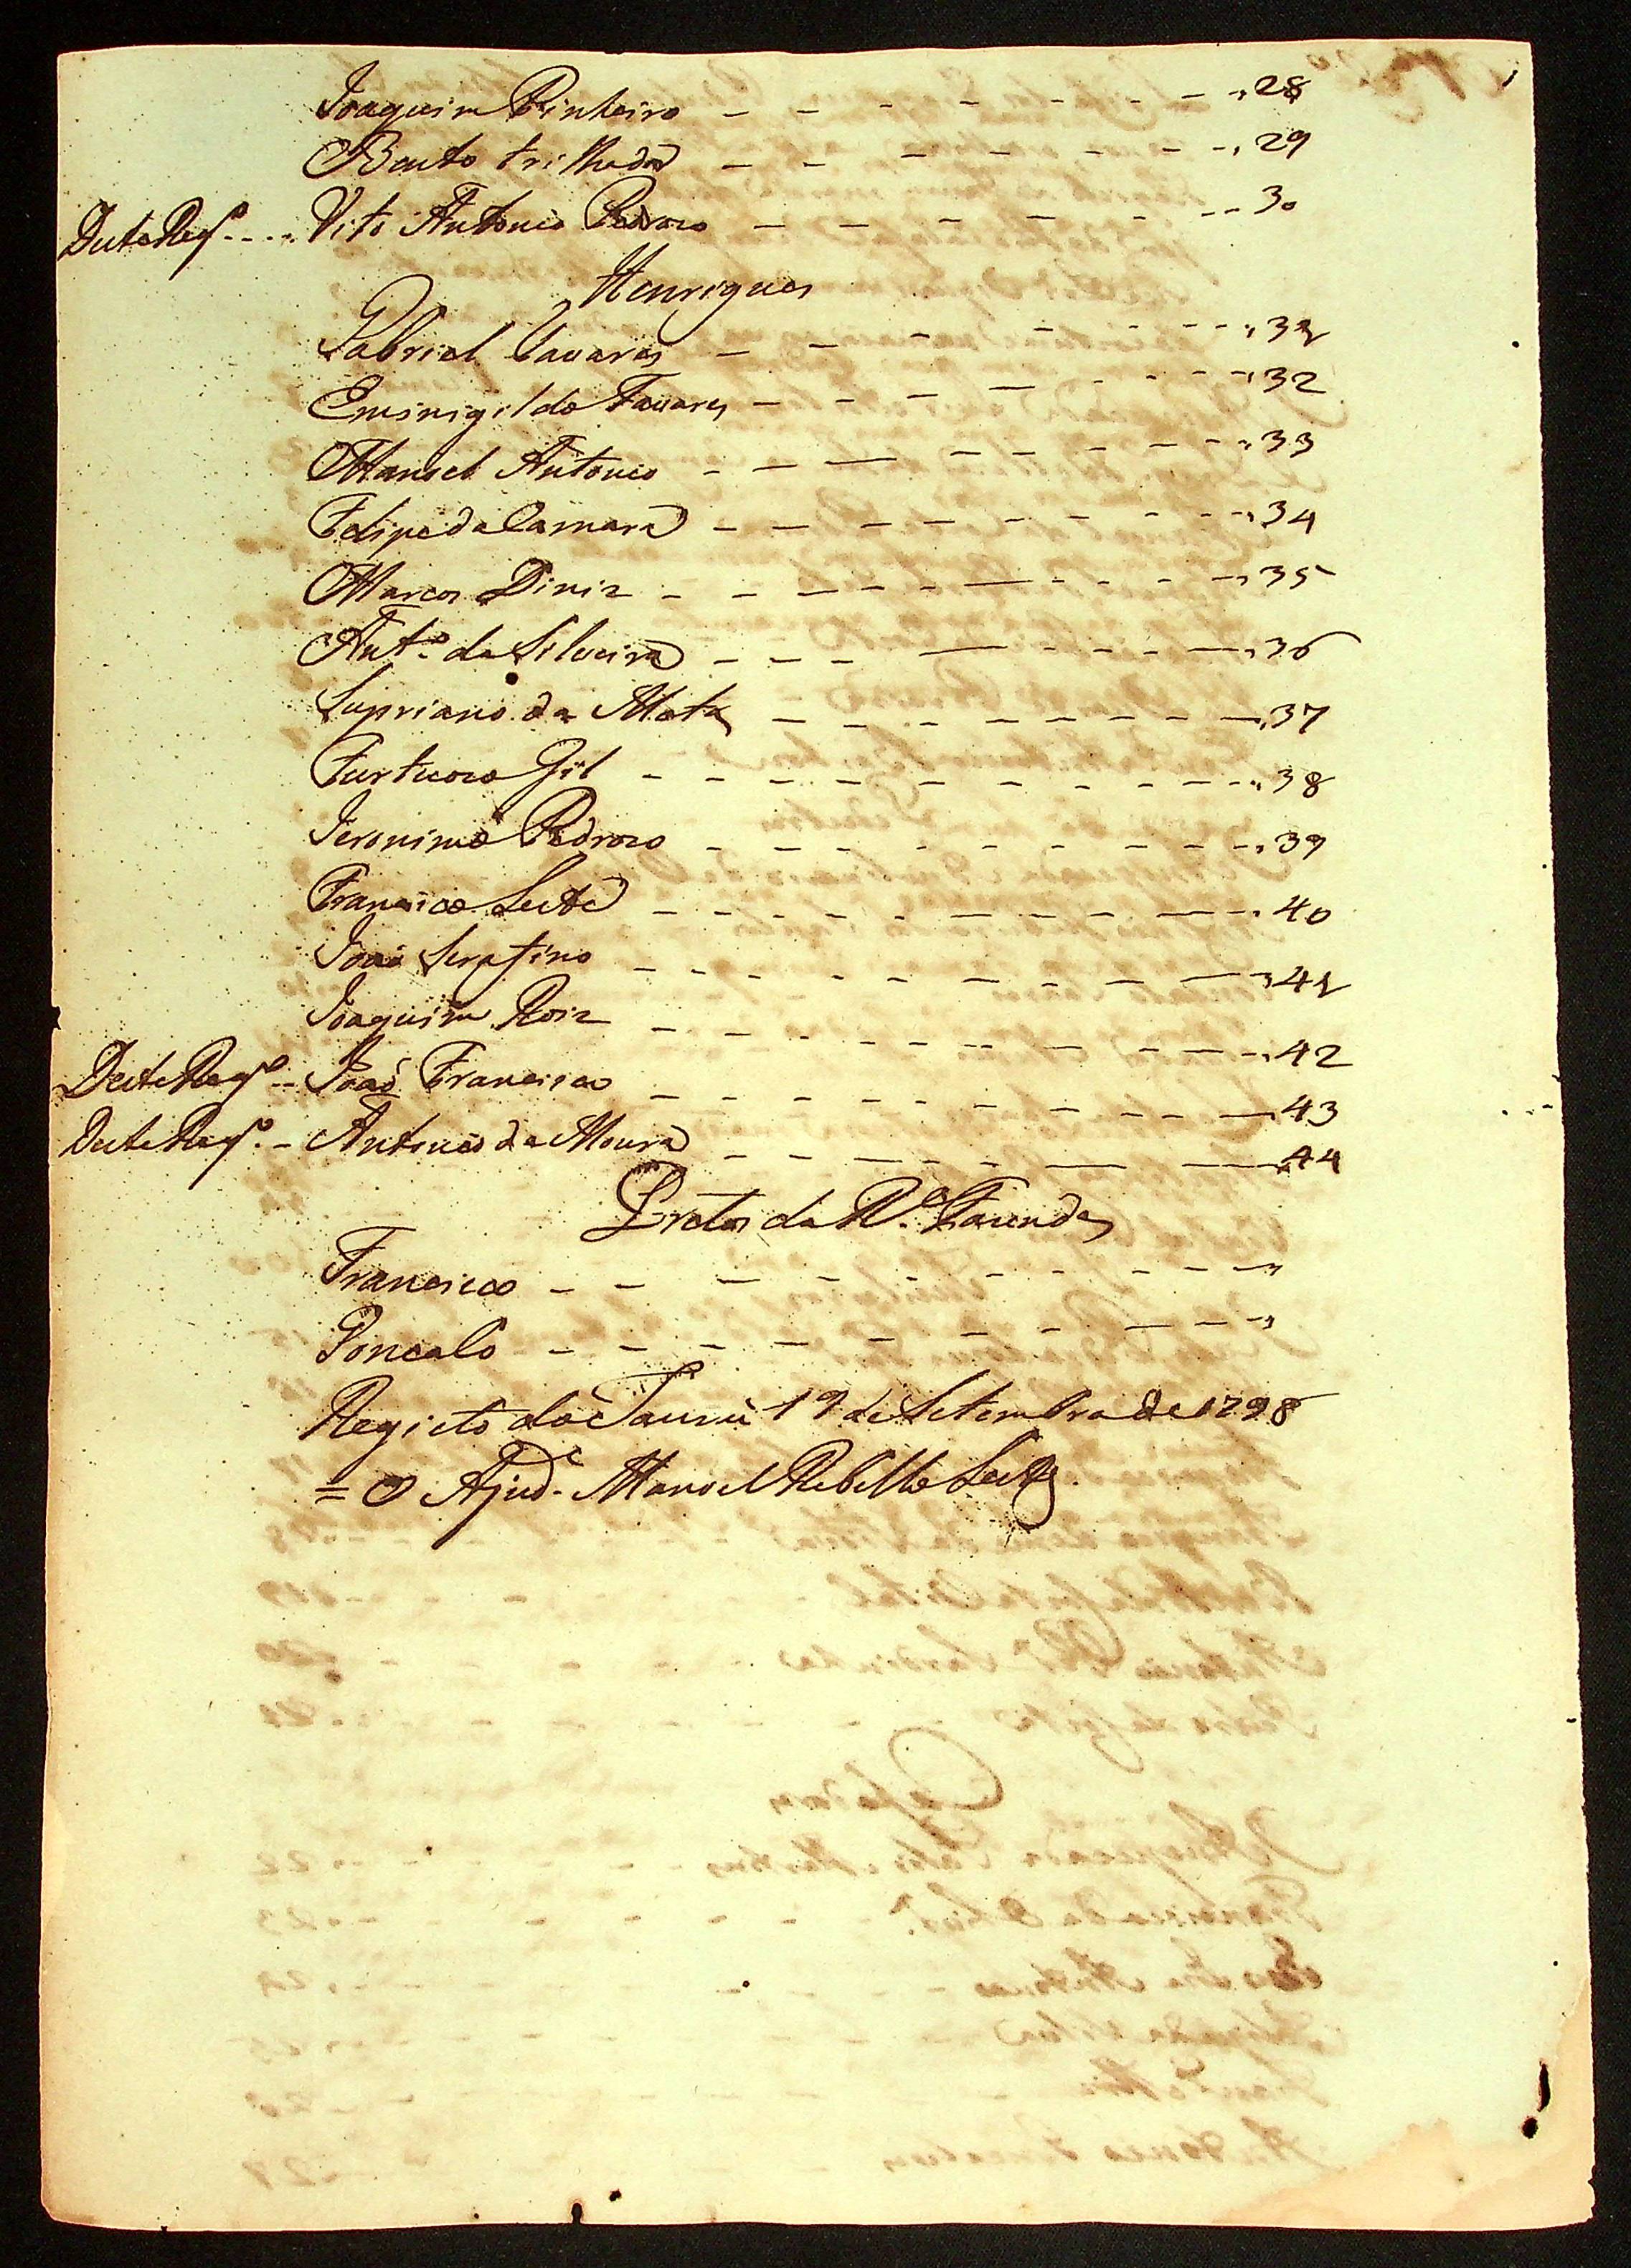 Joaquim Pinheiro - - - - - - - - 28
Bento trilhada - - - - - - - 29
Deste Regº - - - Vito Antonio Pedrozo - - - - - - - 30
Henriques
Gabriel Tavares - - - - - - - 31
Eminigildo Tavares - - - - - - - 32
Manoel Antonio - - - - - - - - 33
Felipe da Camara - - - - - - - - - 34
Marcos Diniz - - - - - - - - - 35
Antº da Silveira - - - - - - - - 36
Supriano da Mata - - - - - - - - 37
Furtuozo Gil - - - - - - - - - 38
Jeronimo Pedrozo - - - - - - - - 39
Francisco Leite - - - - - - - - - 40
João Serafino - - - - - - - - - 41
Joaquim Roiz - - - - - - - - - 42
Deste Regº - João Francisco - - - - - - - - - 43
Deste Regº - Antonio da Moura - - - - - - - 44
Pretos da Rº Fazenda
Francisco - - - - - - - - - -
Goncalo - - - - - - - - - -
Registo do Jaurú 19 de Setembro de 1798
= O Ajudº Manoel Rebello Leite